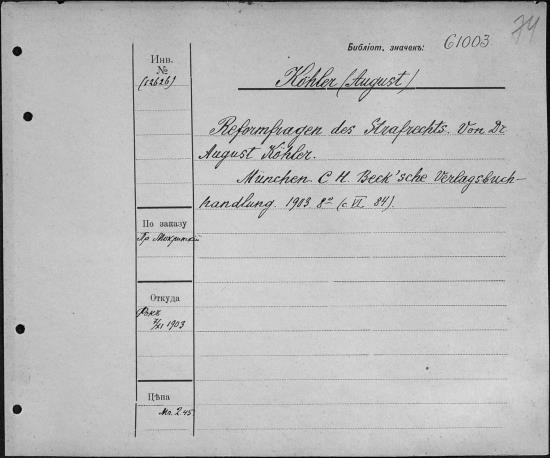 74
Библіот. значекъ: 61003
Инв.
№
(12626)
Köhler (August)
Reformfragen des Strafrechts. Von Dr
August Köhler.
München C. H. Beck'sche Verlagsbuch-
handlung. 1903 8º (c. VI. 84).
По заказу
Пр.
Откуда
1903
Цѣна
Мк. 2.45